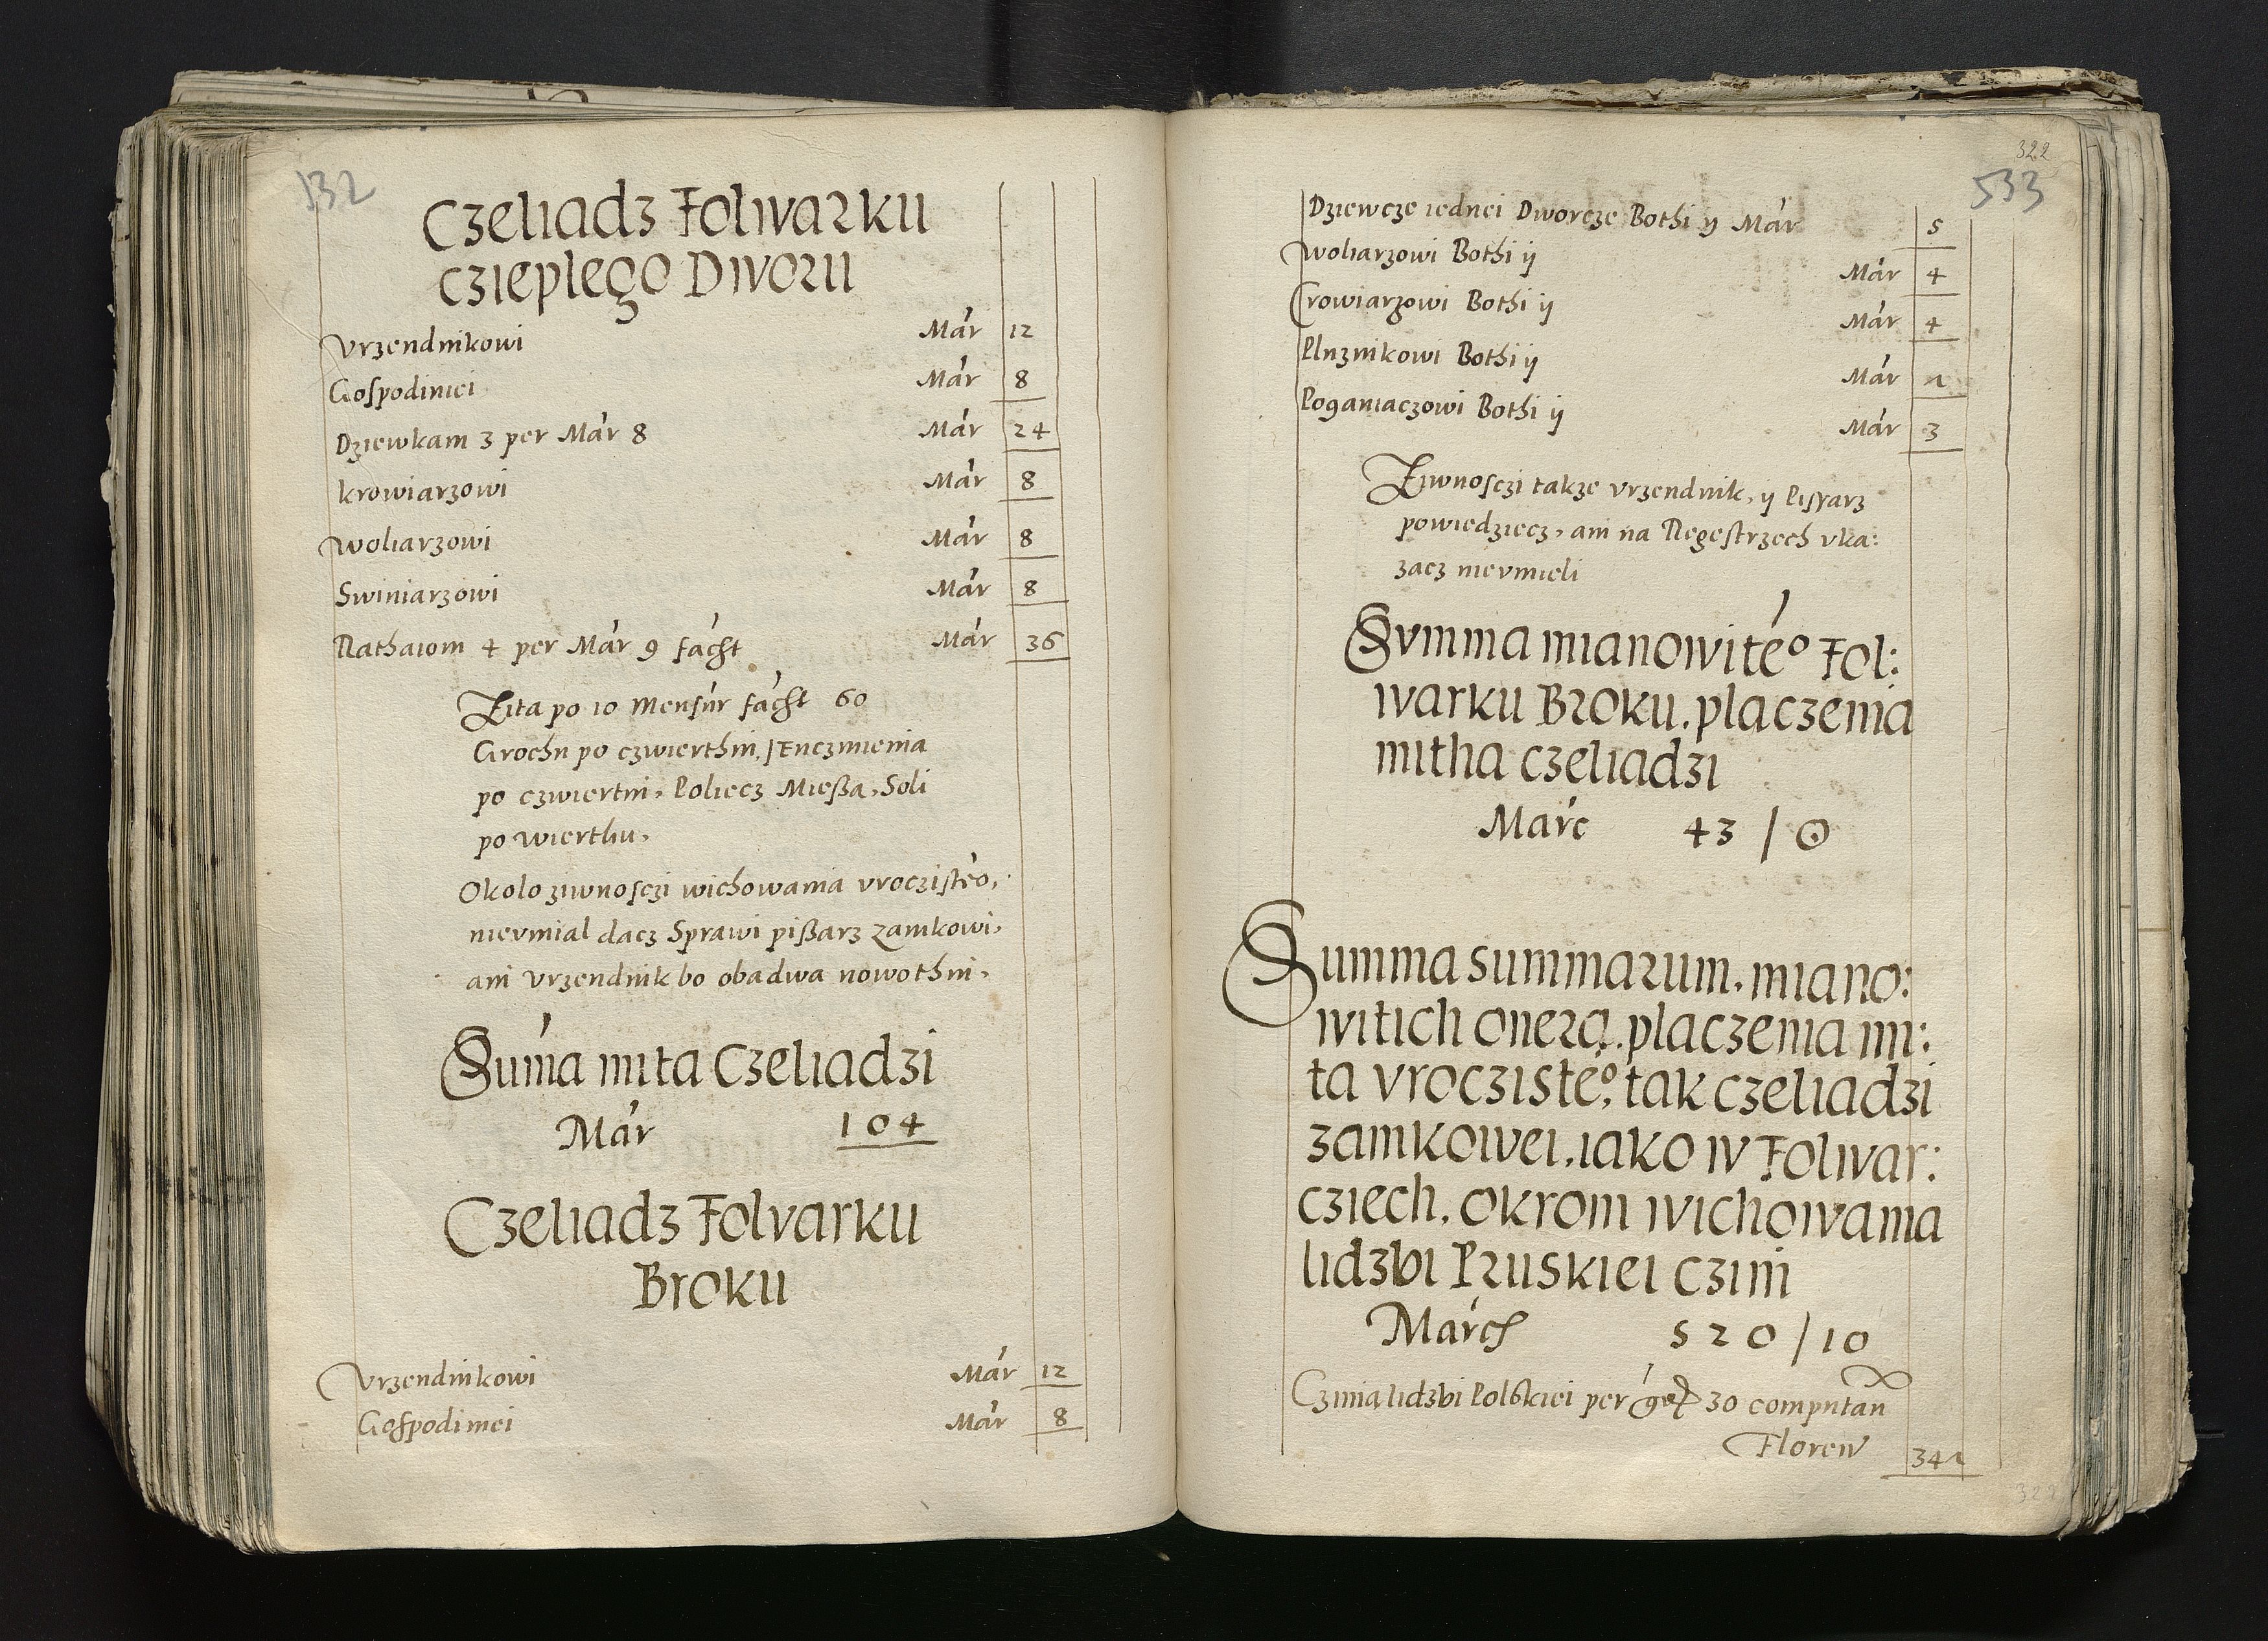 532
Czeliadz Folwarku
Cziepłego Dworu
Vrzendnikowi Mar 12
Gospodiniei Mar 8
Dziewkam 3 per Mar 8 Mar 24
krowiarzowi Mar 8
Woliarzowi Mar 8
Swiniarzowi Mar 8
Rathaiom 4 per Mar 9 facht Mar 36
Zita po 10 Mensur facht 60
Grochu po czwierthni, Ienczmienia
po czwiertni, Poliecz Mießa, Soli
po wierthu,
Okolo ziwnosczi wichowania vroczisteo,
nievmial dacz Sprawi pißarz zamkowi,
ani vrzendnik bo obadwa nowothni,
Suma mita Czeliadzi
Mar 104
Czeliadz Folvarku
Broku
Vrzendnikowi Mar 12
Gospodiniei Mar 8
322
533
Dziewcze iednei Dworcze Bothi ij Mar 5
Woliarzowi Bothi ij Mar 4
Crowiarzowi Bothi ij Mar 4
Pluznikowi Bothi ij Mar
Poganiaczowi Bothi ij Mar 3
Ziwnosczi takze vrzendnik, ij Pissarz
powiedziecz, ani na Regestrzech vka:
zacz nievmieli
Summa mianowiteo Fol:
warku Broku. placzenia
mitha czeliadzi
Marc 43 / 0
Summa summarum. miano:
witich onera. placzenia mi:
ta vroczisteo, tak czeliadzi
zamkowei, iako w Folwar:
cziech. okrom wichowania
lidzbi Pruskiei czini
March 520 / 10
Czinia lidzbi Polskiei per 30 computan
Floren 341
322